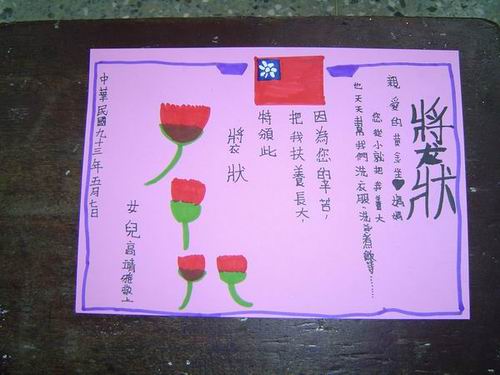 獎狀
親愛的黃金坐♥媽媽
您從小就把我養大
也天天幫我們洗衣服、洗碗煮飯等……
因為您的辛苦,
把我扶養長大,
特頒此
獎狀
女兒高靖雅敬上
中華民國九十三年五月七日